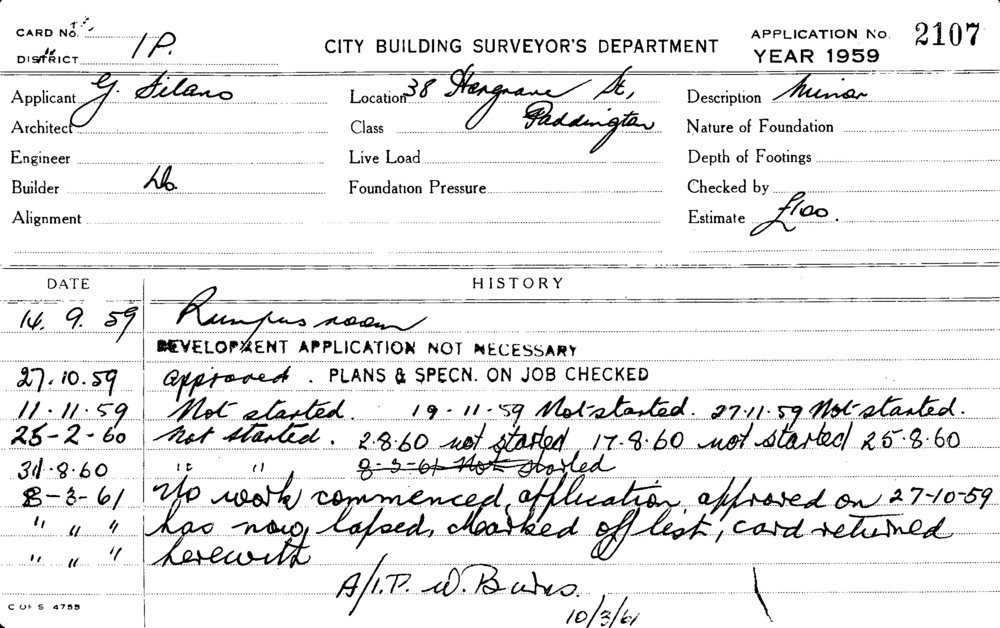 CARD No.
DISTRICT 1P.
CITY BUILDING SURVEYOR'S DEPARTMENT
APPLICATION No. 2107
YEAR 1959
Applicant G. Silano
Location 38 Hargrave St,
Description Minor
Architect
Class Paddington
Nature of Foundation
Engineer
Live Load
Depth of Footings
Builder Do.
Foundation Pressure
Checked by
Alignment
Estimate £100.
DATE HISTORY
14. 9. 59 Rumpus room
DEVELOPMENT APPLICATION NOT NECESSARY
27.10.59 approved. PLANS & SPECN. ON JOB CHECKED
11-11-59 Not started. 19-11-59 Not started. 27.11.59 Not started.
25-2-60 Not started. 2.8.60 not started 17.8.60 not started 25.8.60
31.8.60 " " 8-3-61 Not started
8-3-61 No work commenced, application approved on 27-10-59
" " " has now lapsed, marked off list, card returned
" " " herewith
A/I.P. W. Burns.
10/3/61
C OF S 4755